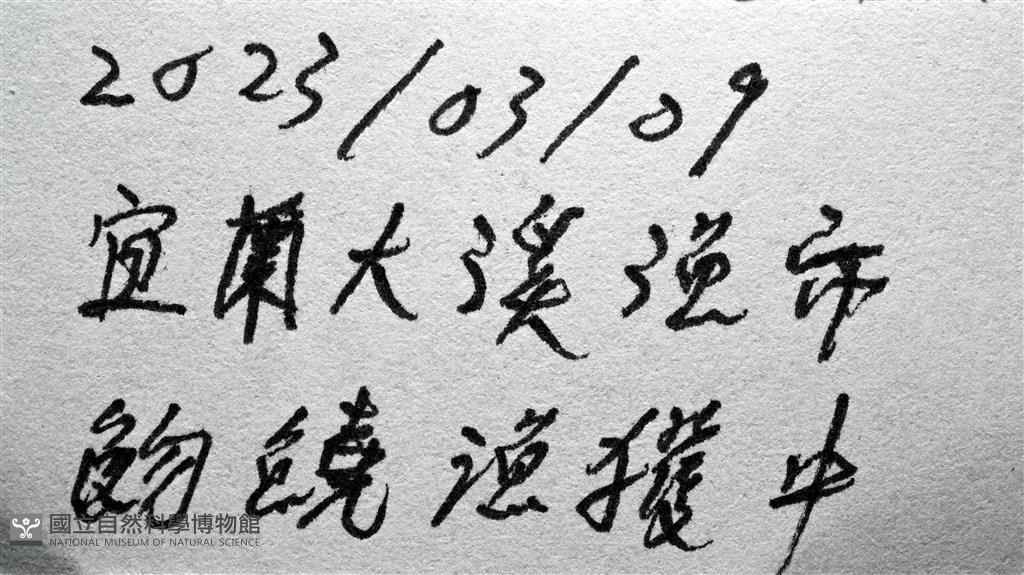 2023/03/09
宜蘭大溪漁市
魩鱙漁獲中
國立自然科學博物館
NATIONAL MUSEUM OF NATURAL SCIENCE